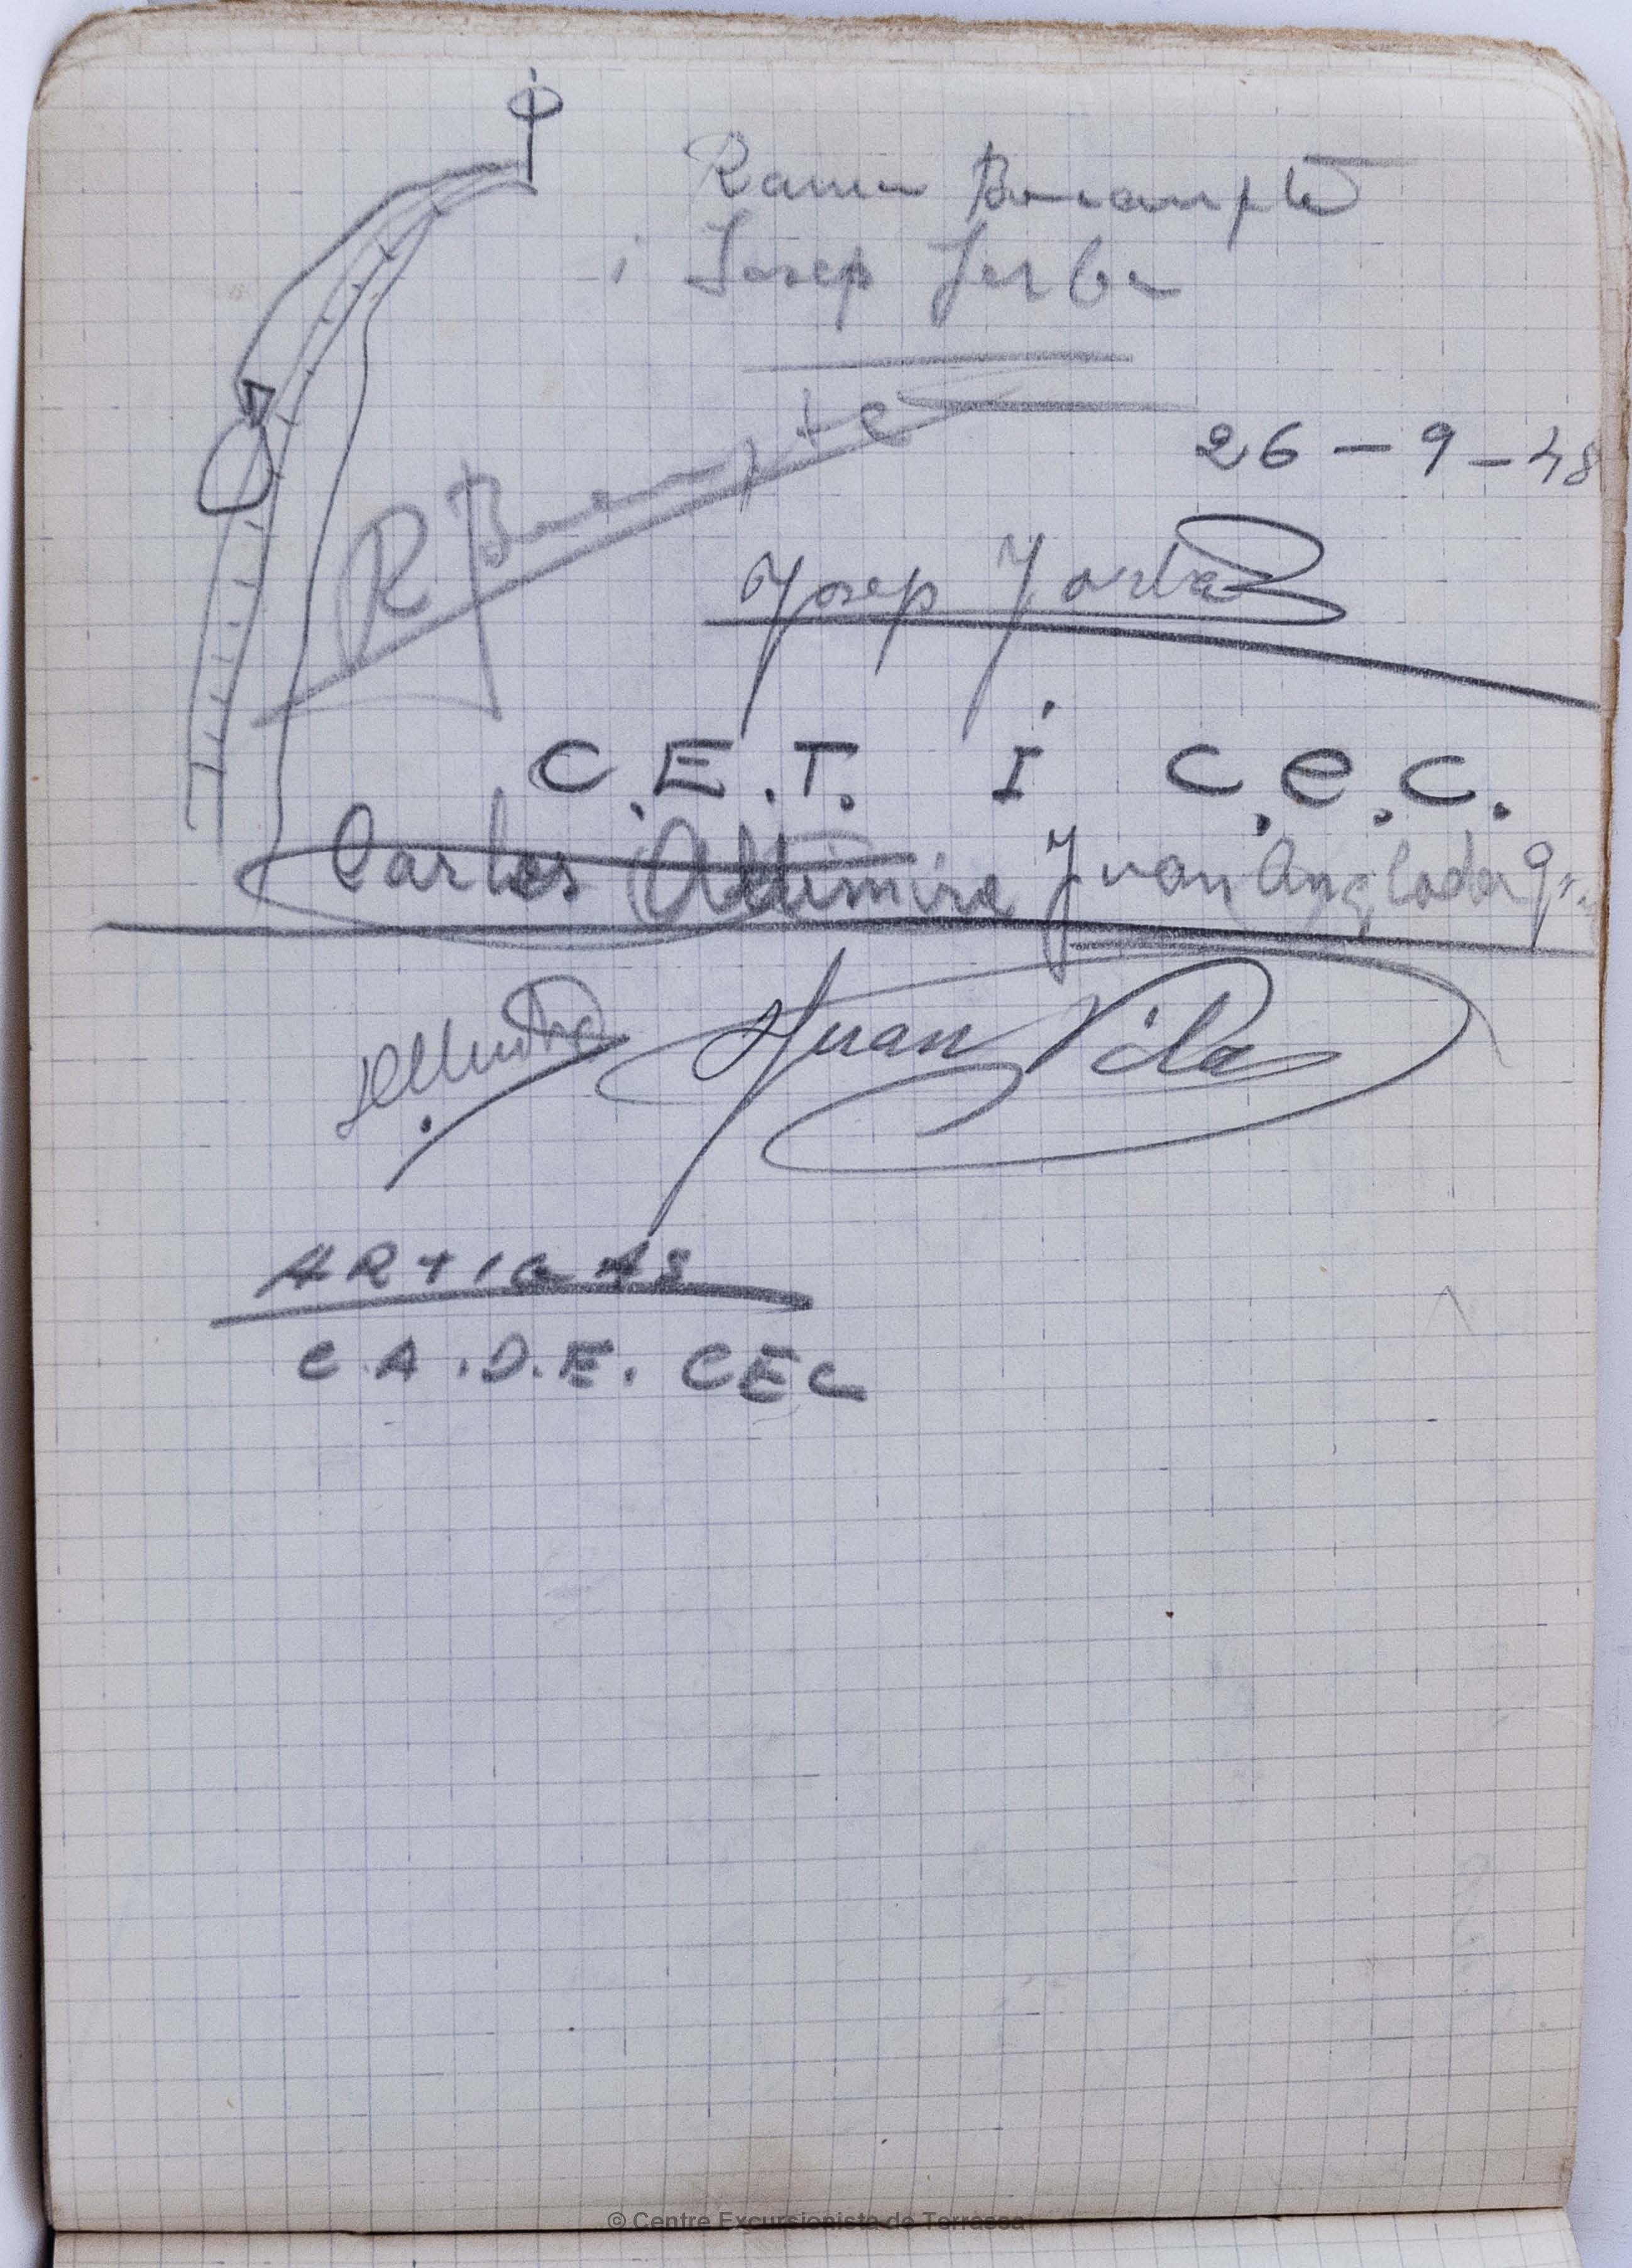 Ramon Boncompte
i Josep Jorba
R Boncompte
26 - 9 - 48
Josep Jorba
C.E.T. I C.E.C.
Carlos Altimira Juan Anglada
Juan Vila
ARTIGAS
C.A.D.E. CEC
© Centre Excursionista de Terrassa